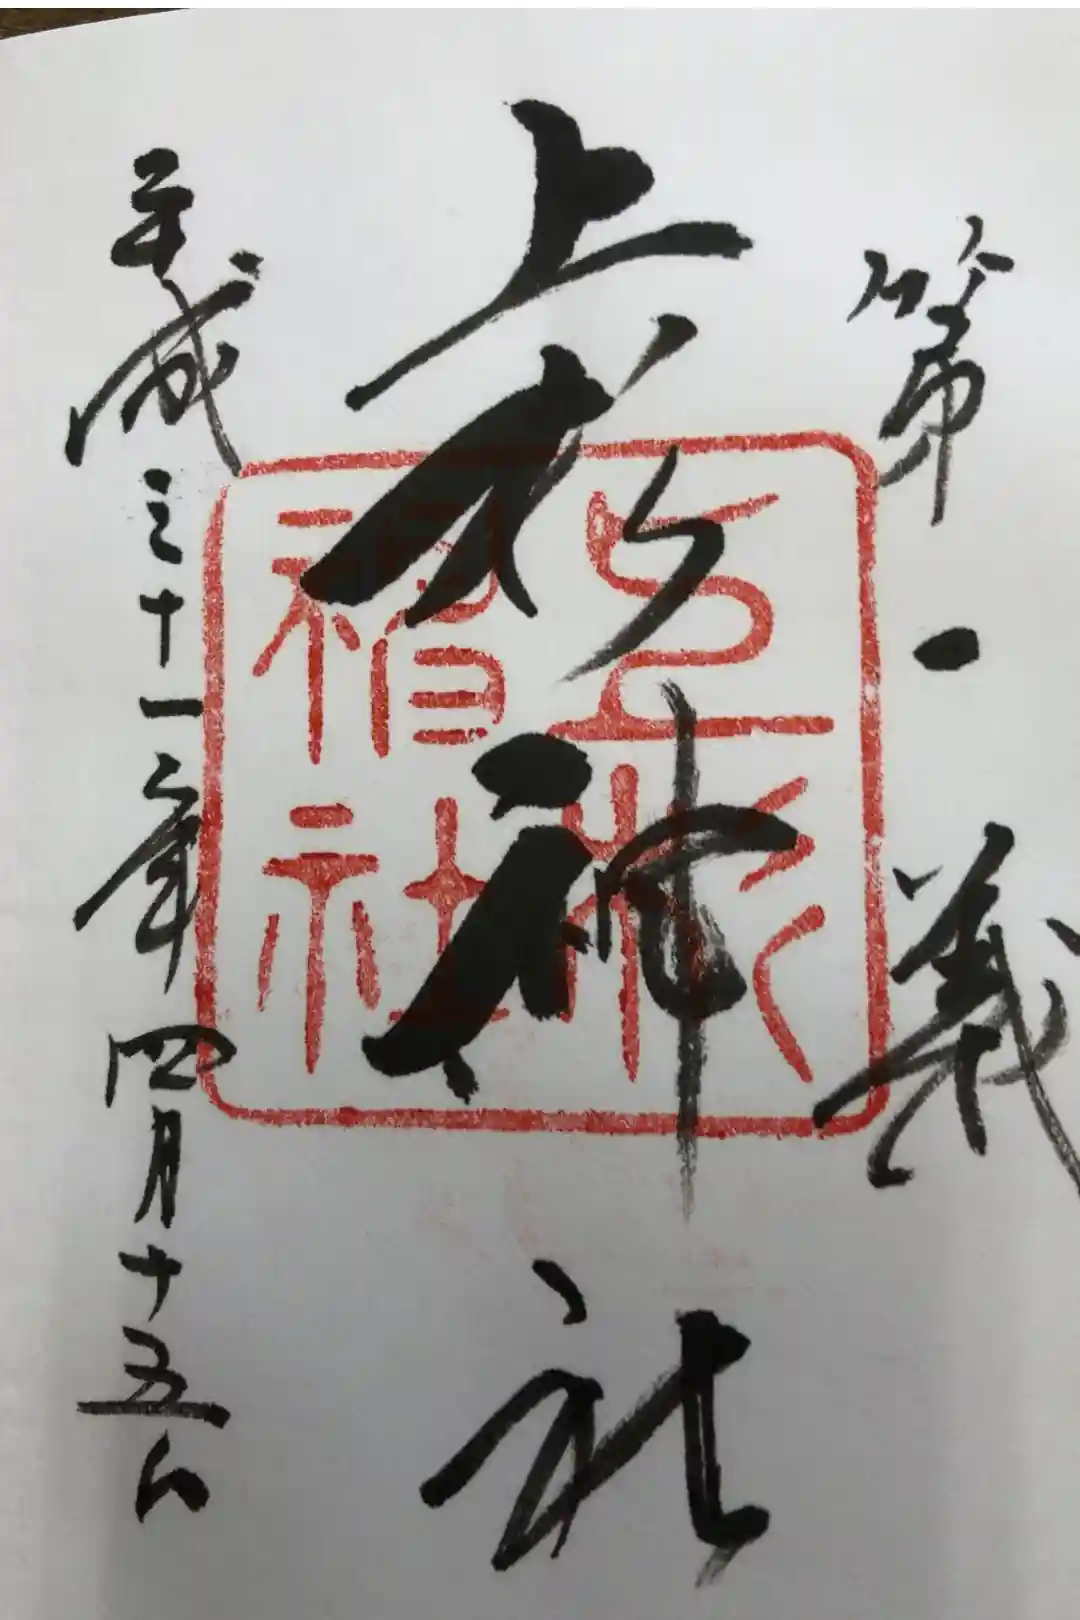 第一義
上杉神社
平成三十一年四月十五日
上杉神社